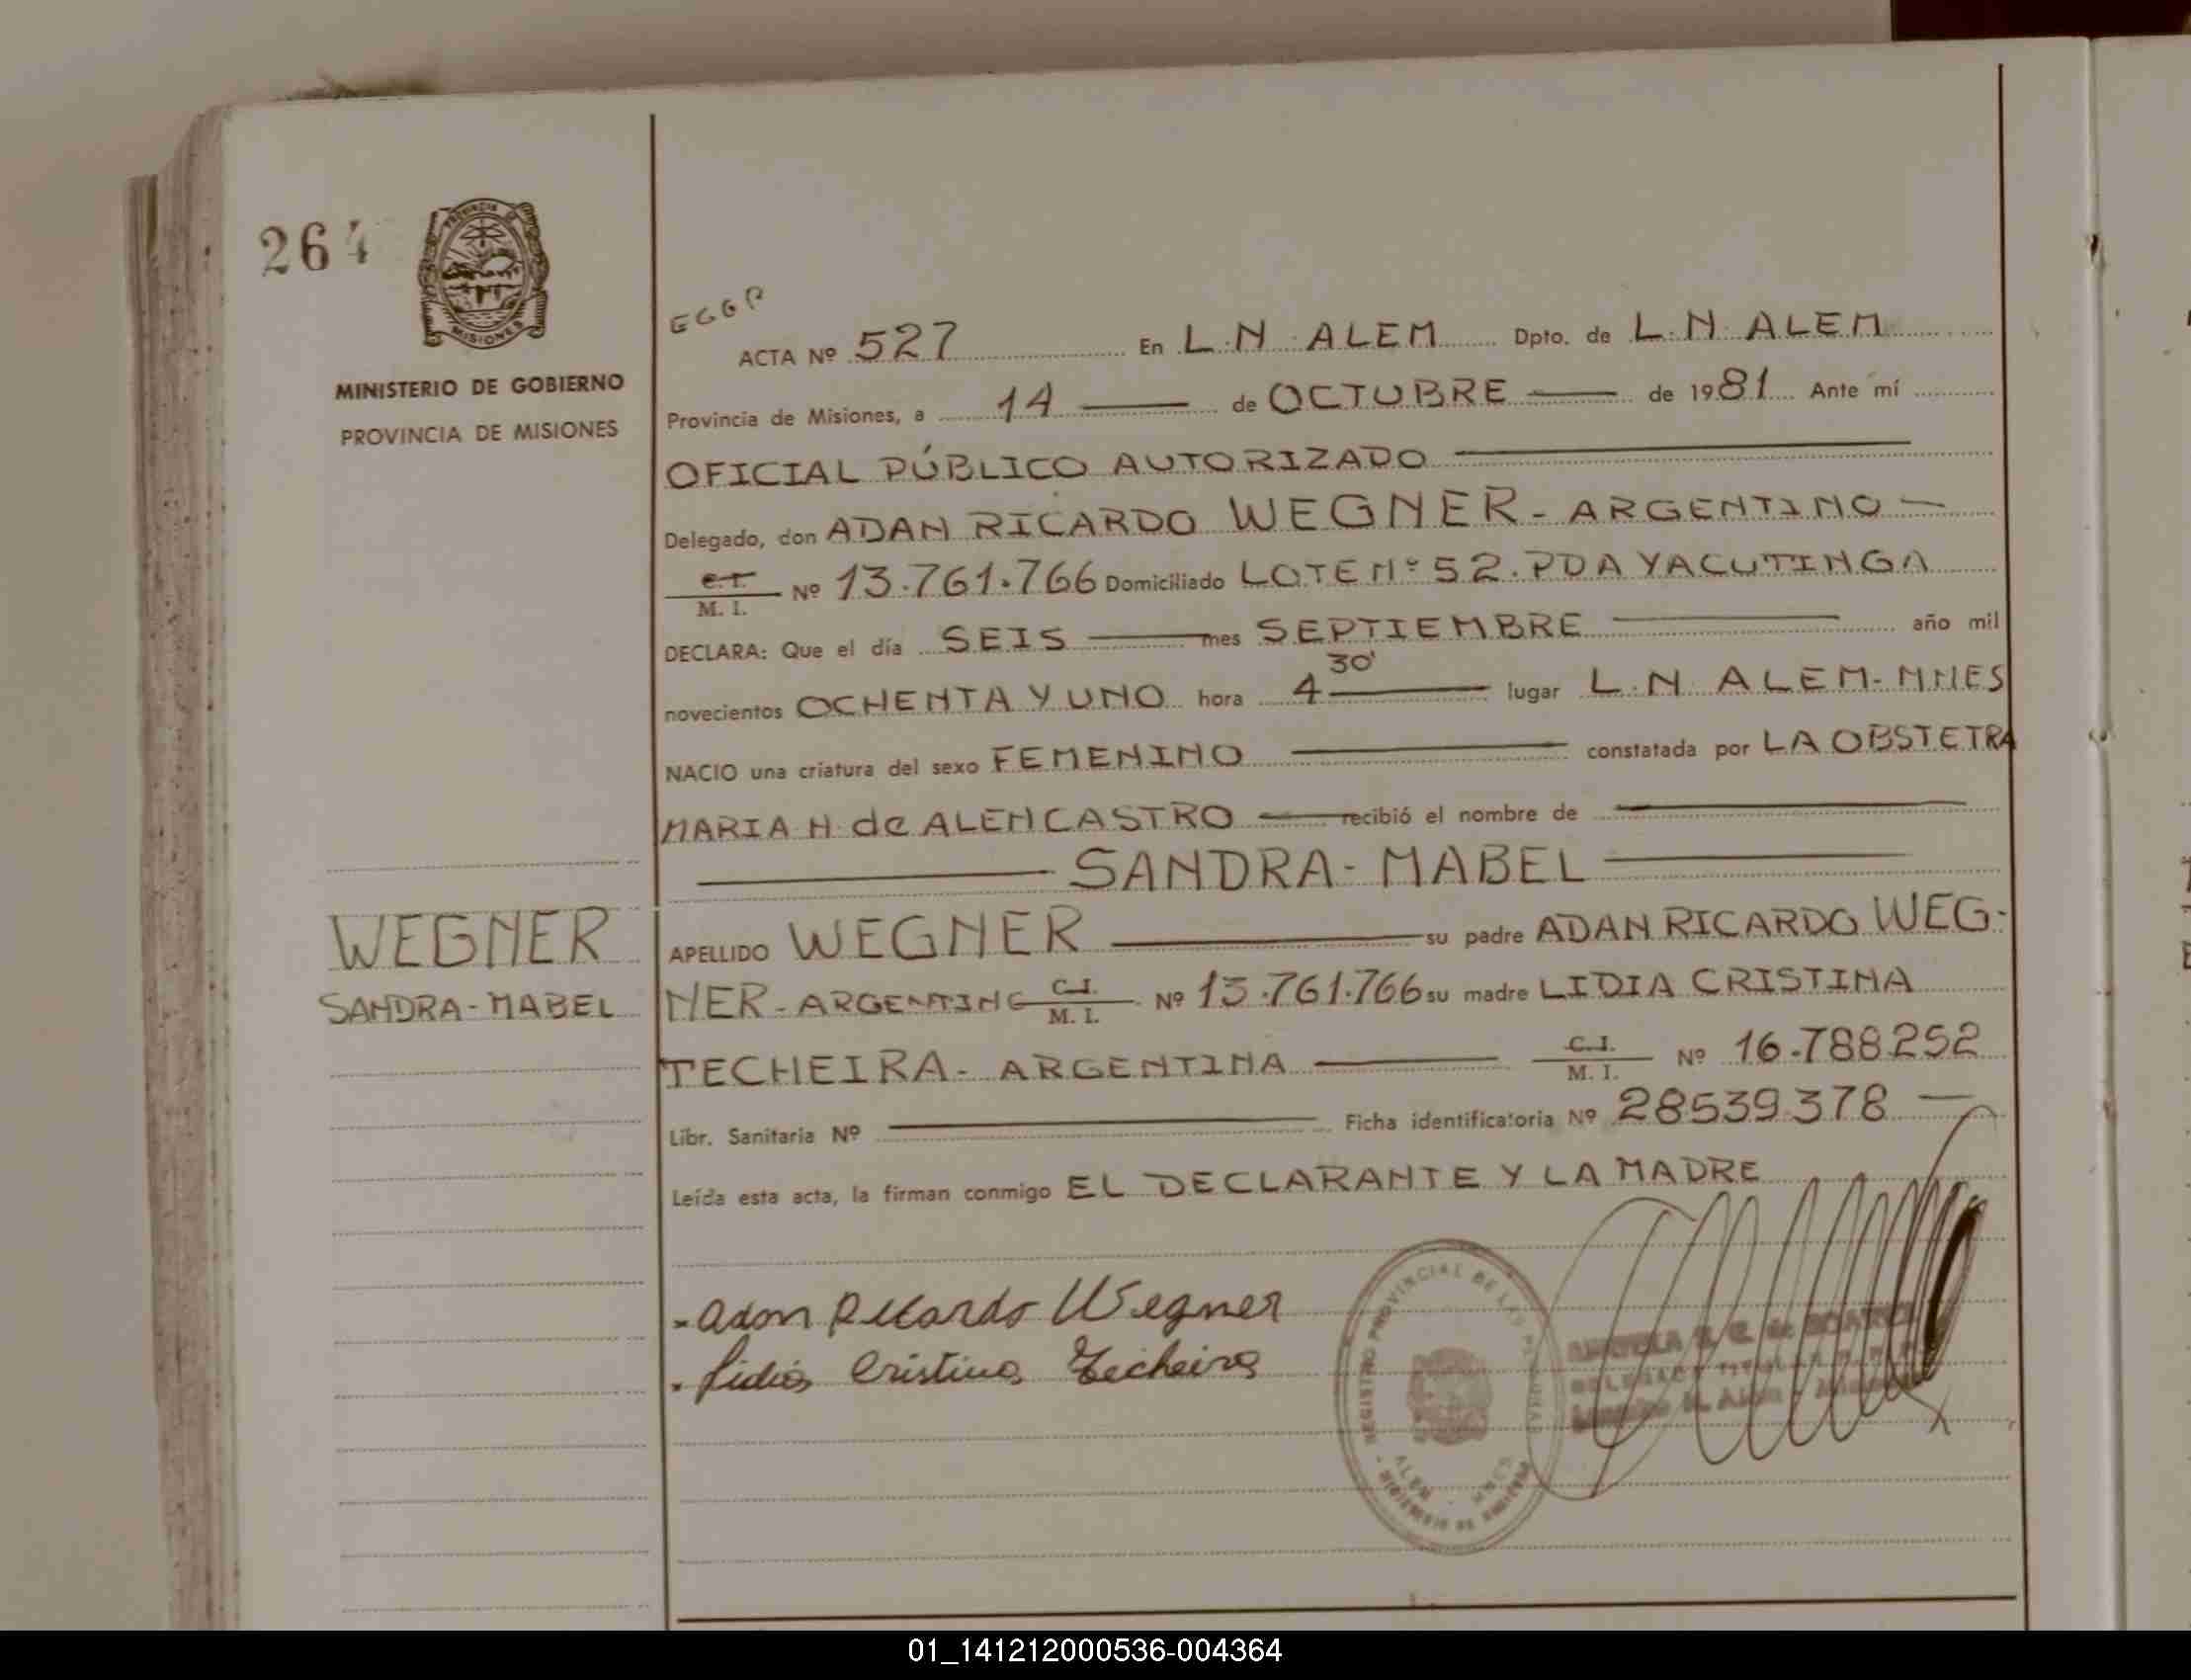 264
PROVINCIA DE
MISIONES
MINISTERIO DE GOBIERNO
PROVINCIA DE MISIONES
ACTA Nº 527 En L. N. ALEM Dpto. de L. N. ALEM
Provincia de Misiones, a 14 de OCTUBRE de 1981 Ante mí
OFICIAL PÚBLICO AUTORIZADO
Delegado, don ADAN RICARDO WEGNER - ARGENTINO
C.I. M. I. Nº 13.761.766 Domiciliado LOTE Nº 52. PDA YACUTINGA
DECLARA: Que el día SEIS mes SEPTIEMBRE año mil
novecientos OCHENTA Y UNO hora 4 30' lugar L. N. ALEM - MNES
NACIO una criatura del sexo FEMENINO constatada por LA OBSTETRA
MARIA H de ALENCASTRO recibió el nombre de
SANDRA - MABEL
WEGNER
SANDRA - MABEL
APELLIDO WEGNER su padre ADAN RICARDO WEG-
NER - ARGENTINO C.I. M. I. Nº 13.761.766 su madre LIDIA CRISTINA
TECHEIRA - ARGENTINA C.I. M. I. Nº 16.788252
Libr. Sanitaria Nº Ficha identificatoria Nº 28539.378
Leída esta acta, la firman conmigo EL DECLARANTE Y LA MADRE
- Adan Ricardo Wegner
. Lidia Cristina Techeira
REGISTRO PROVINCIAL DE LAS PERSONAS
ALEM - MNES
MINISTERIO DE GOBIERNO
01_141212000536-004364